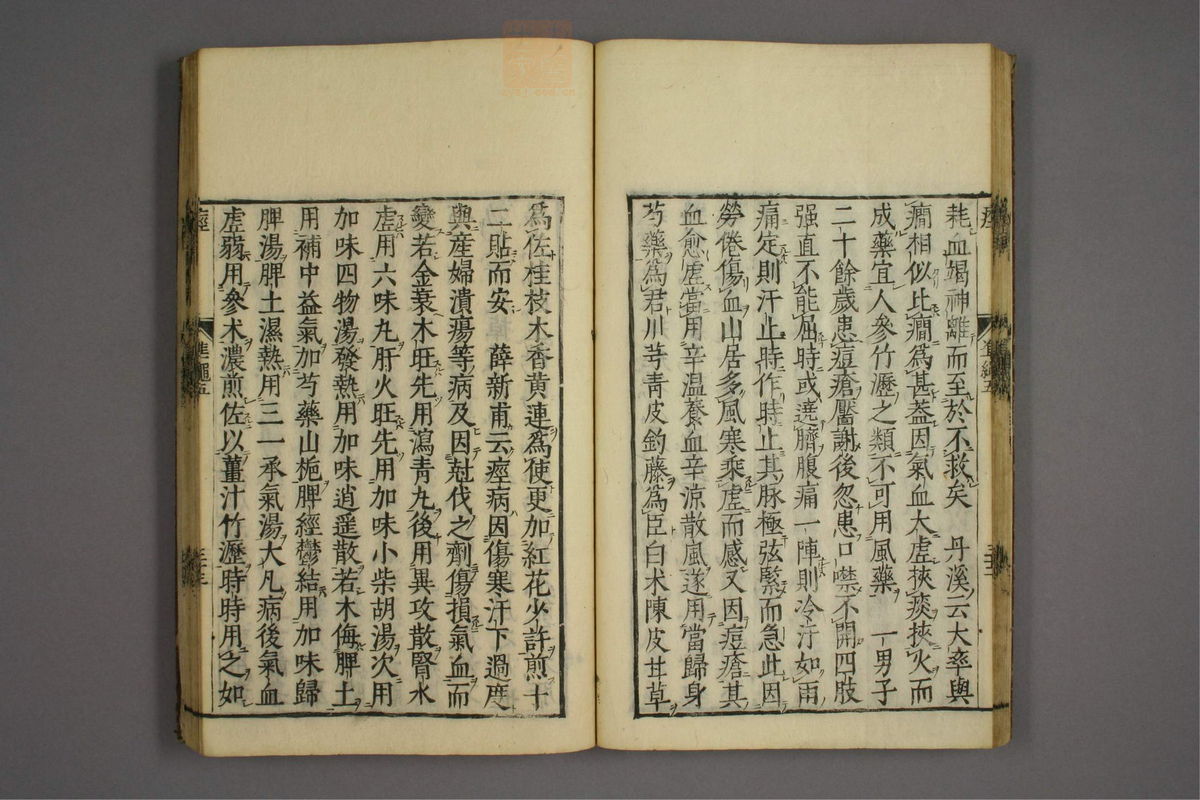 耗血竭神離而至於不救矣　丹溪云大率與
癇相似比癇爲甚蓋因氣血大虛挾痰挾火而
成藥宜人參竹瀝之類不可用風藥　一男子
二十餘歲患痘瘡靨謝後忽患口噤不開四肢
强直不能屈時或遶臍腹痛一陣則冷汗如雨
痛定則汗止時作時止其脉極弦緊而急此因
勞倦傷血山居多風寒乘虛而感又因痘瘡其
血愈虛當用辛温養血辛涼散風遂用當歸身
芍藥爲君川芎青皮釣藤爲臣白术陳皮甘草
爲佐桂枝木香黄連爲使更加紅花少許煎十
二貼而安　薛新甫云痙病因傷寒汗下過度
與産婦潰瘍等病及因尅伐之劑傷損氣血而
變若金衰木旺先用瀉青九後用異攻散腎水
虛用六味丸肝火旺先用加味小柴胡湯次用
加味四物湯發熱用加味逍遥散若木侮脾土
用補中益氣加芍藥山梔脾經鬱結用加味歸
脾湯脾土濕熱用三一承氣湯大凡病後氣血
虛弱用參术濃煎佐以薑汁竹瀝時時用之如
痙
準繩五